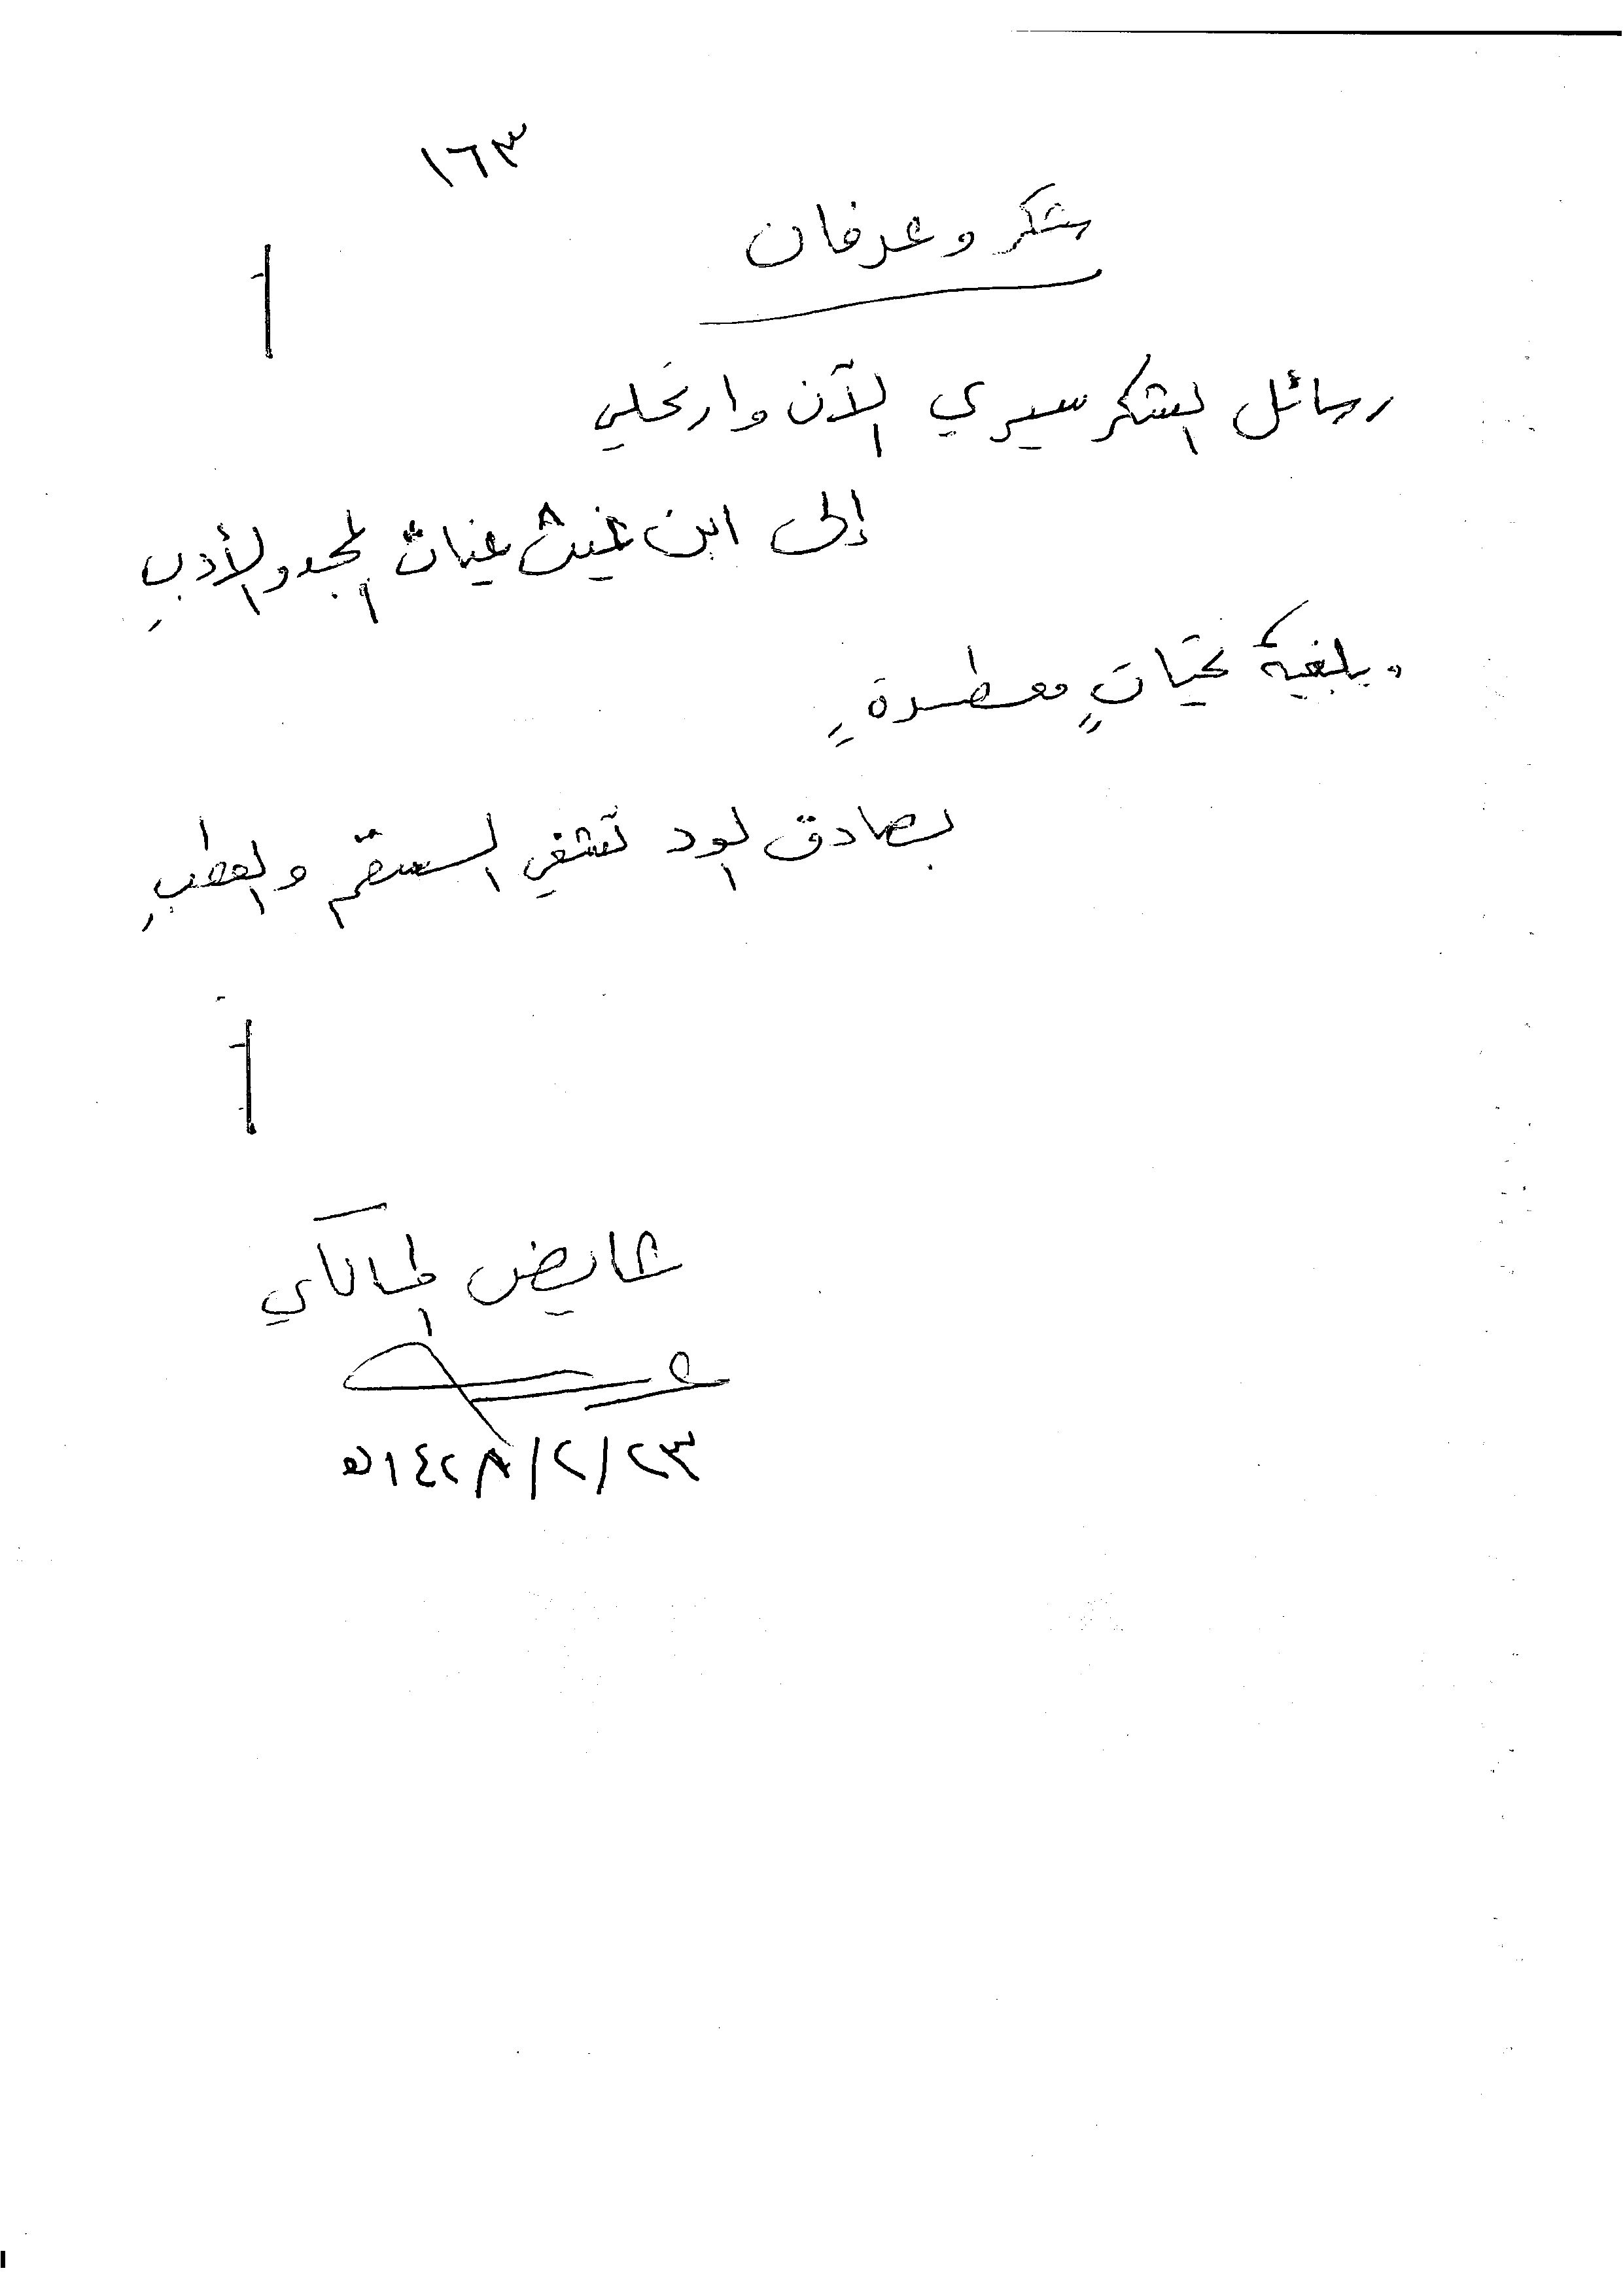 ١٦٣
شكر وعرفان
رسائل الشكر سيري الآن وارتحلي
إلى ابن غيث غياث المجد والأدبِ
وبلغيه تحياتٍ معطرةٍ
بصادق الود تشفي السقم والعطبِ
عايض المالكي
٢٣/٢/١٤٢٨هـ